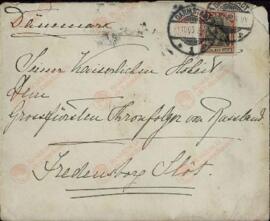 Dänmark
DARMSTADT
Seiner Kaiserlichen Hoheit
Dem
Grossfürsten Thronfolger von Russland
Fredensborg Slot.